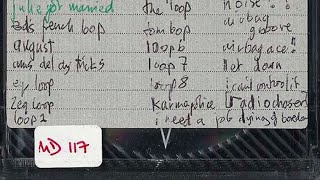 julie got married the loop noise!!
eds french loop tom bop airbag groove
august loop 6 airbag ace!!
ams delay tricks loop 7 let down
eq loop loop 8 i can't control it
2eq loop Karmapolice radiochosen
loop 1 i need a job dying of boredom
MD 117